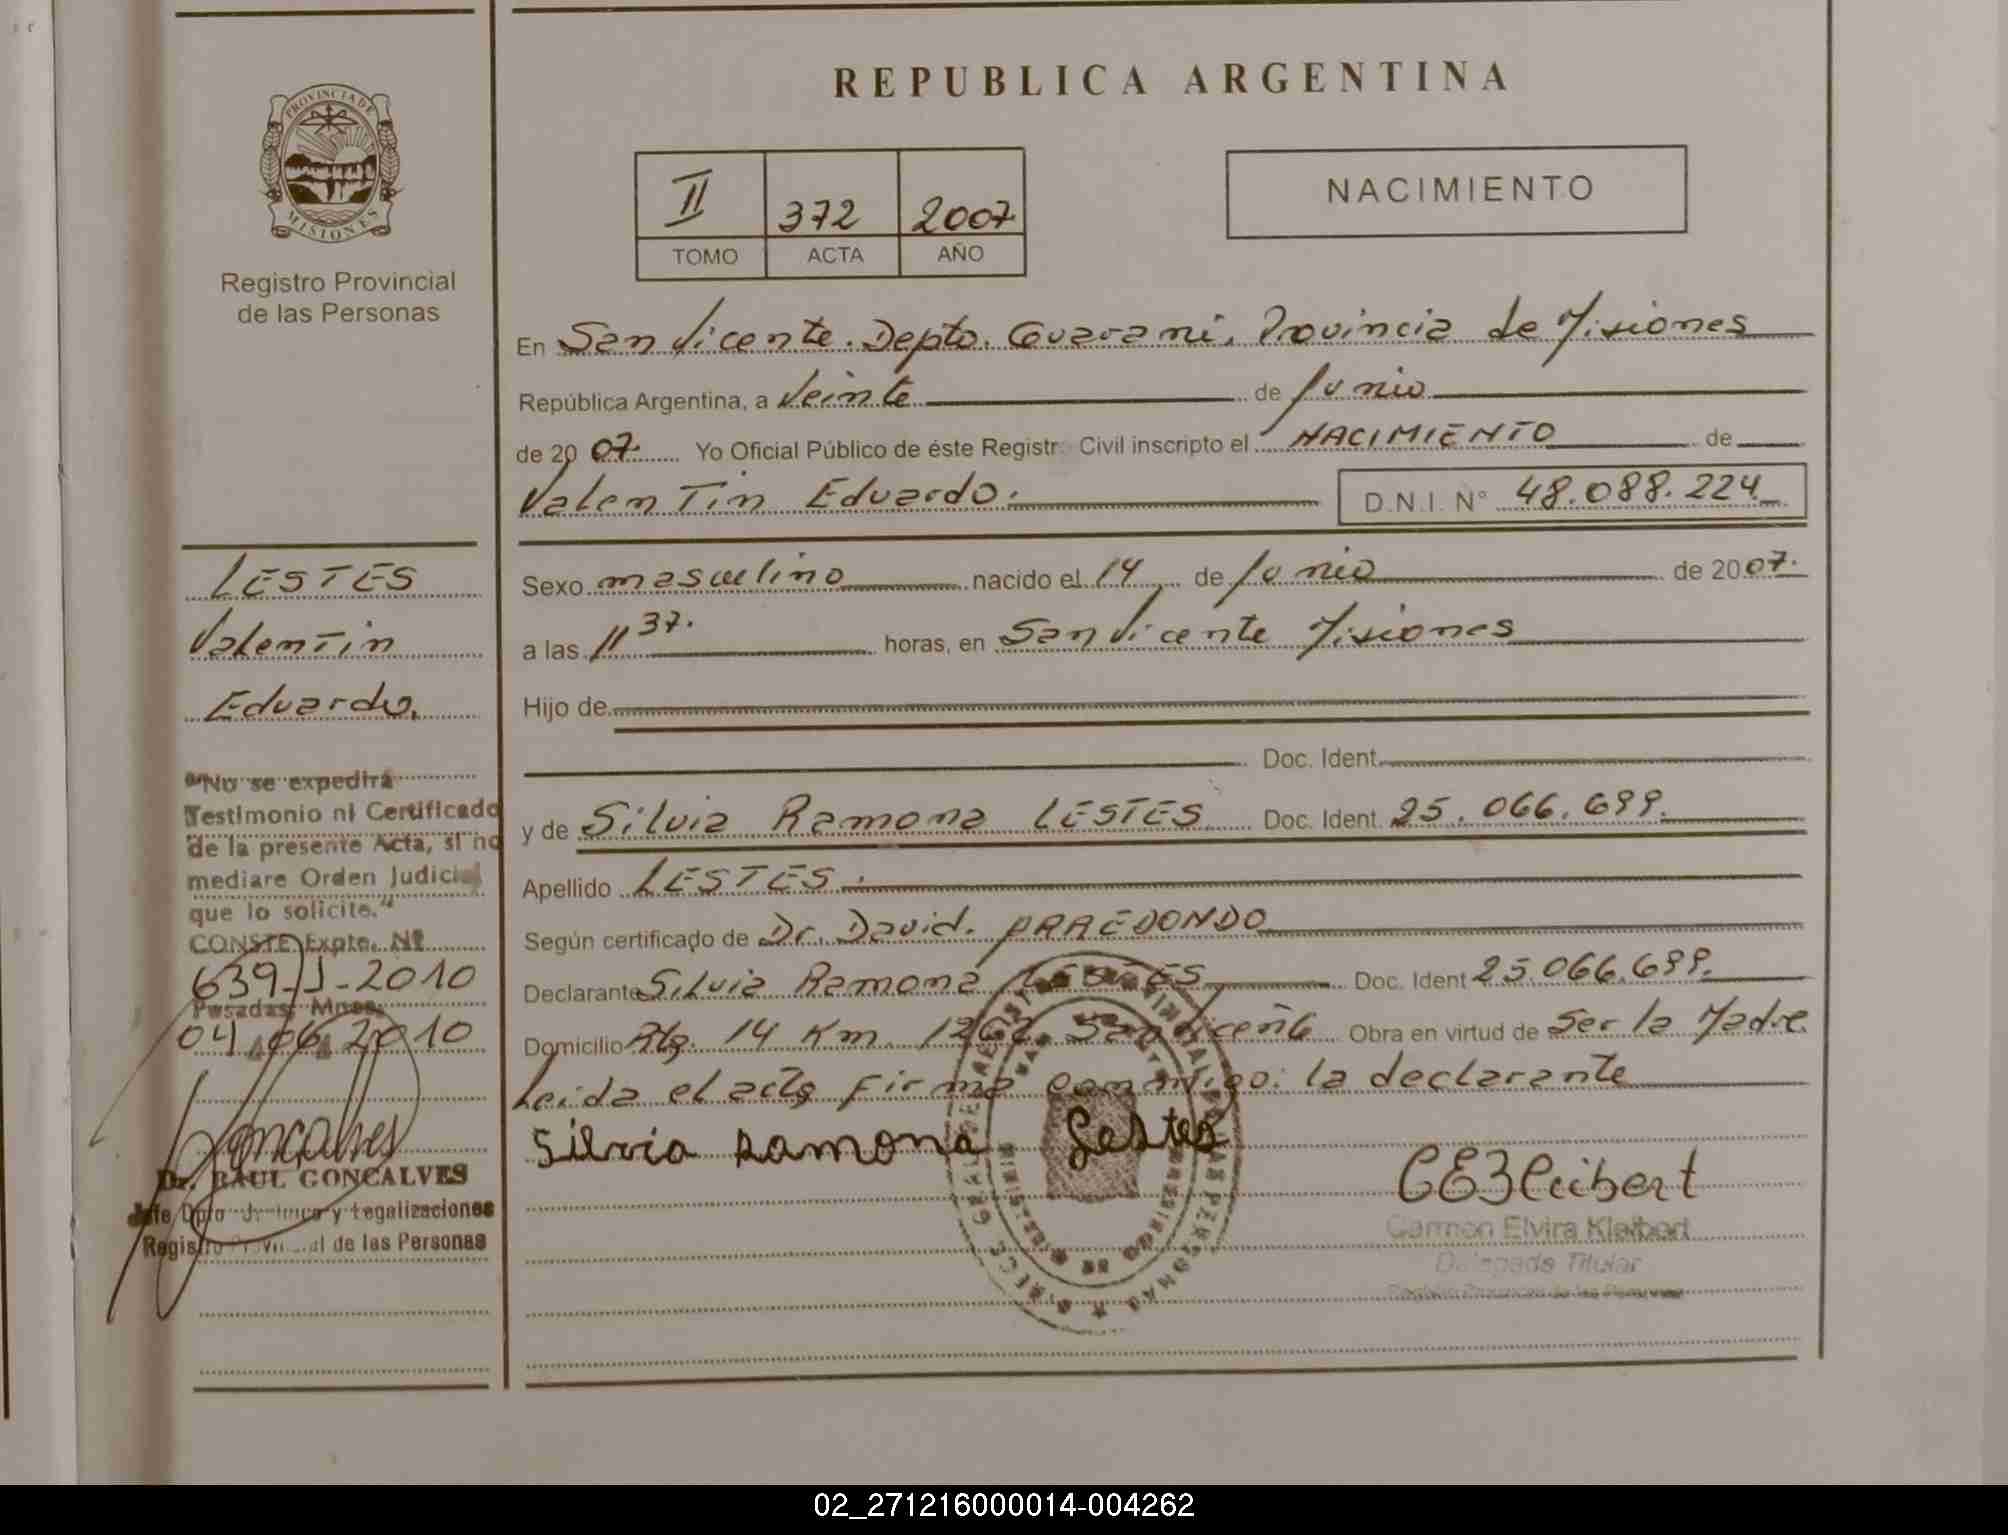 REPUBLICA ARGENTINA
PROVINCIA DE
MISIONES
Registro Provincial
de las Personas
II 372 2007
TOMO ACTA AÑO
NACIMIENTO
En San Vicente. Depto. Guarani. Provincia de Misiones
República Argentina, a Veinte de Junio
de 2007. Yo Oficial Público de éste Registr Civil inscripto el NACIMIENTO de
Valentin Eduardo. D.N.I. N° 48.088.224
Sexo masculino nacido el 14 de Junio de 2007.
a las 11 37. horas, en San Vicente Misiones
Hijo de
Doc. Ident.
y de Silvia Ramona LESTES Doc. Ident. 25.066.699.
Apellido LESTES.
Según certificado de Dr. David.
Declarante Silvia Ramona LESTES Doc. Ident 25.066.699.
Domicilio Rta. 14 Km. San Vicente Obra en virtud de Ser la Madre.
Leida el acta firma conmigo: la declarante
Silvia Ramona Lestes
Carmen Elvira Kleibert
Delegada Titular
LESTES
Valentin
Eduardo.
"No se expedirá
Testimonio ni Certificado
de la presente Acta, si no
mediare Orden Judicial
que lo solicite."
CONSTE Expte. Nº
639-J-2010
Posadas, Mnes.
04 06 2010
Goncalves
Dr. RAUL GONCALVES
Jefe Dpto Jurídico y Legalizaciones
Registro Provincial de las Personas
02_271216000014-004262